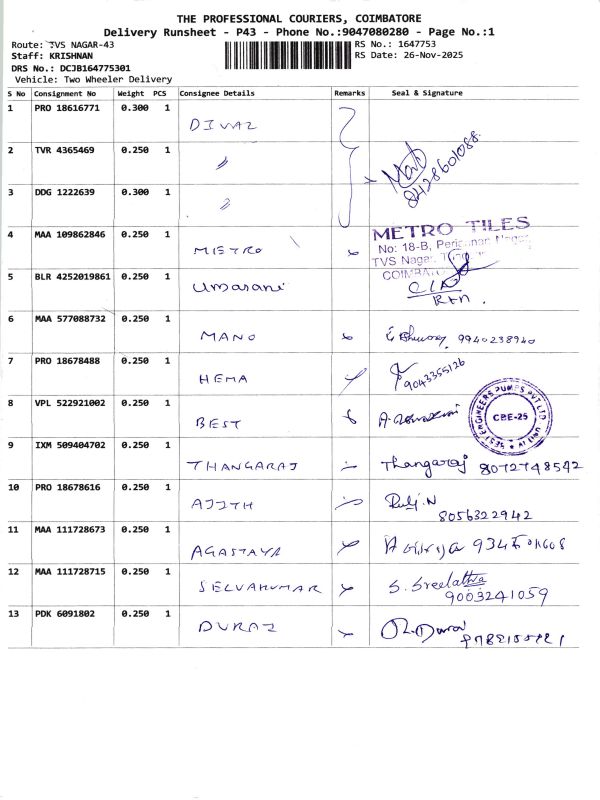 THE PROFESSIONAL COURIERS, COIMBATORE
Delivery Runsheet - P43 - Phone No.:9047080280 - Page No.:1
Route: TVS NAGAR-43
RS No.: 1647753
Staff: KRISHNAN
RS Date: 26-Nov-2025
DRS No.: DCJB164775301
Vehicle: Two Wheeler Delivery
S No Consignment No Weight PCS Consignee Details Remarks Seal & Signature
1 PRO 18616771 0.300 1 DIVAZ
2 TVR 4365469 0.250 1 〃
8428601088
3 DDG 1222639 0.300 1 〃
4 MAA 109862846 0.250 1 METRO
METRO TILES
No: 18-B,
TVS Nagar,
5 BLR 4252019861 0.250 1 Umarani
6 MAA 577088732 0.250 1 MANO 9940238940
7 PRO 18678488 0.250 1 HEMA 9043355126
8 VPL 522921002 0.250 1 BEST
BEST ENGINEERS PUMPS PVT LTD
CBE-25
9 IXM 509404702 0.250 1 THANGARAJ Thangaraj 8072748542
10 PRO 18678616 0.250 1 AJITH
8056322942
11 MAA 111728673 0.250 1 AGASTAYA
12 MAA 111728715 0.250 1 SELVAKUMAR S. Sreelatha
9003241059
13 PDK 6091802 0.250 1 DURAI